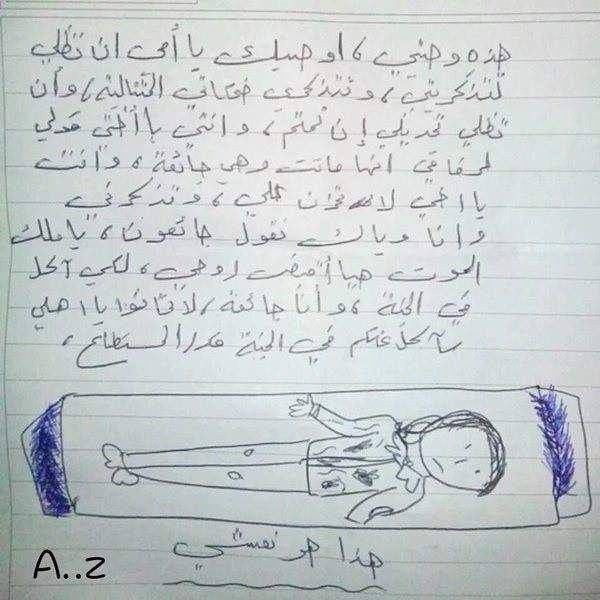 هذه وصيتي، اوصيك يا أمي ان تظلي
تتذكريني، وتتذكري ضحكاتي المتتالية، وأن
تظلي إن نمتم، وانتي يا أختي قولي
لرفاقي انها ماتت وهي جائعة، وانت
يا اخي لا تحزن علي، وتذكرني
وانا وياك نقول جائعون، يا ملك
الموت هيا أقبض روحي، لكي آكل
في الجنة، وأنا جائعة، لا تخافوا يا اهلي
سآكل عنكم في الجنة قدر المستطاع،
هذا هو نعشي
A..z